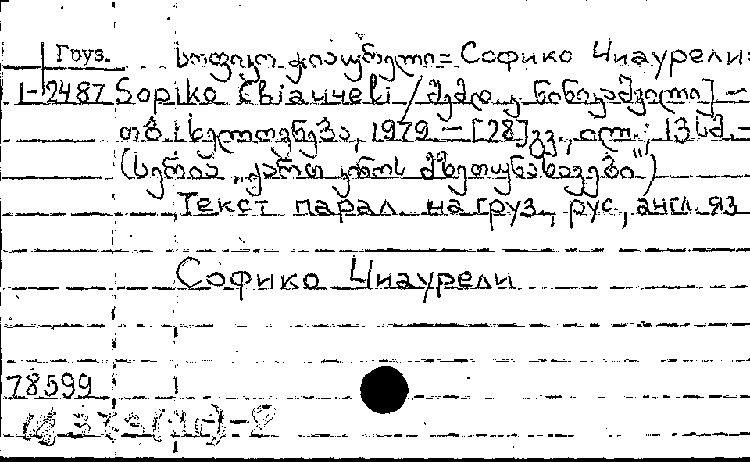 Груз.
სოფიკო ჭიაურელი = Софико Чиаурели =
1-2487 Sopiko Chiaureli / [შემდ. ე. ნინიკაშვილი] –
თბ.: ხელოვნება, 1979. – [28] გვ., ილ.; 13 სმ. –
(სერია „ქართ. კინოს მსახიობები")
Текст парал. на груз., рус., англ. яз
Софико Чиаурели
78599